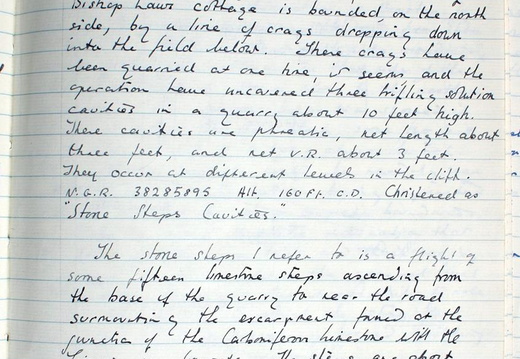 Bishop Laws cottage is bounded, on the north
side, by a line of crags dropping down
into the field below. These crags have
been quarried at one time, it seems, and the
operation have uncovered three trifling solution
cavities in a quarry about 10 feet high.
These cavities are phreatic, net length about
three feet, and net V.R. about 3 feet.
They occur at different levels in the cliff.
N.G.R. 38285895 Alt. 160 Ft. O.D. Christened as
"Stone Steps Cavities."
The stone steps I refer to is a flight of
some fifteen limestone steps ascending from
the base of the quarry to near the road
surmounting the escarpment formed at the
junction of the Carboniferous limestone with the